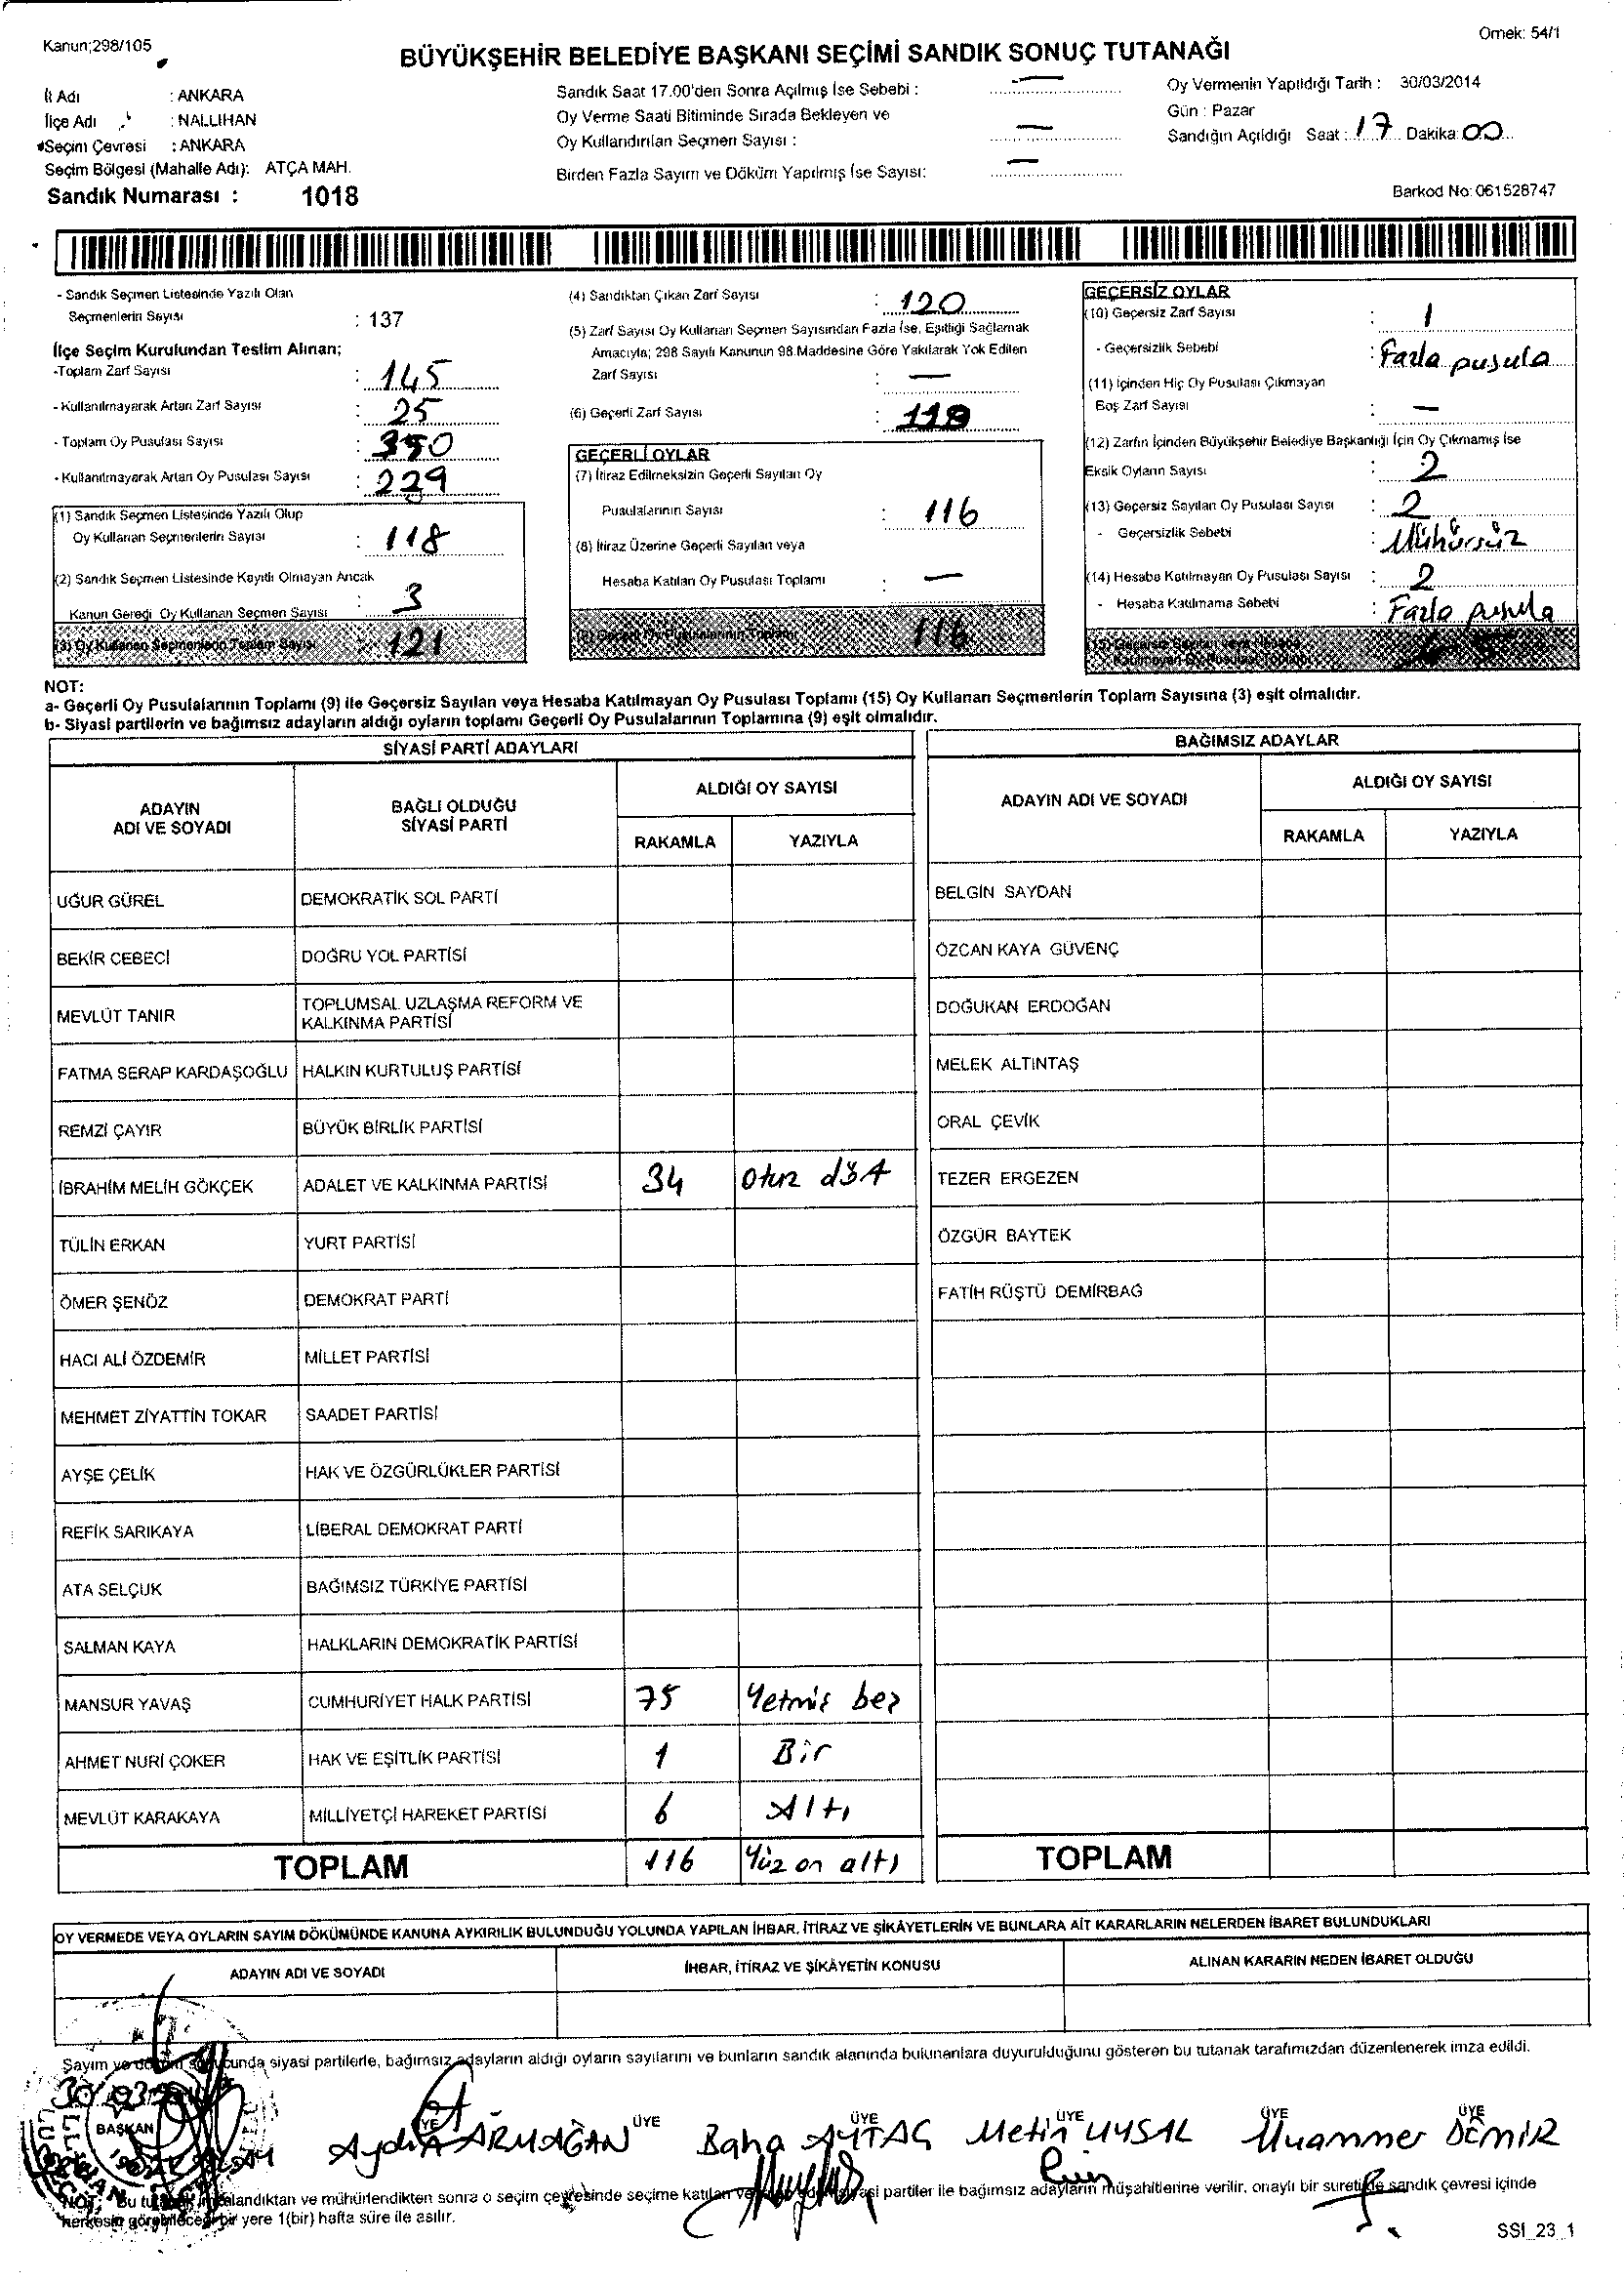 Kanun;298/105
Örnek: 54/1
BÜYÜKŞEHİR BELEDİYE BAŞKANI SEÇİMİ SANDIK SONUÇ TUTANAĞI
İl Adı : ANKARA
İlçe Adı : NALLIHAN
Seçim Çevresi : ANKARA
Seçim Bölgesi (Mahalle Adı): ATÇA MAH.
Sandık Numarası : 1018
Sandık Saat 17.00'den Sonra Açılmış İse Sebebi : —
Oy Verme Saati Bitiminde Sırada Bekleyen ve
Oy Kullandırılan Seçmen Sayısı : —
Birden Fazla Sayım ve Döküm Yapılmış İse Sayısı: —
Oy Vermenin Yapıldığı Tarih : 30/03/2014
Gün : Pazar
Sandığın Açıldığı Saat : 17 Dakika: 00
Barkod No: 061528747
- Sandık Seçmen Listesinde Yazılı Olan
Seçmenlerin Sayısı : 137
İlçe Seçim Kurulundan Teslim Alınan;
-Toplam Zarf Sayısı : 145
- Kullanılmayarak Artan Zarf Sayısı : 25
- Toplam Oy Pusulası Sayısı : 350
- Kullanılmayarak Artan Oy Pusulası Sayısı : 229
(1) Sandık Seçmen Listesinde Yazılı Olup
Oy Kullanan Seçmenlerin Sayısı : 118
(2) Sandık Seçmen Listesinde Kayıtlı Olmayan Ancak
Kanun Gereği Oy Kullanan Seçmen Sayısı : 3
(3) Oy Kullanan Seçmenlerin Toplam Sayısı : 121
(4) Sandıktan Çıkan Zarf Sayısı : 120
(5) Zarf Sayısı Oy Kullanan Seçmen Sayısından Fazla İse, Eşitliği Sağlamak
Amacıyla; 298 Sayılı Kanunun 98.Maddesine Göre Yakılarak Yok Edilen
Zarf Sayısı : —
(6) Geçerli Zarf Sayısı :
GEÇERLİ OYLAR
(7) İtiraz Edilmeksizin Geçerli Sayılan Oy
Pusulalarının Sayısı : 116
(8) İtiraz Üzerine Geçerli Sayılan veya
Hesaba Katılan Oy Pusulası Toplamı : —
(9) Geçerli Oy Pusulalarının Toplamı : 116
GEÇERSİZ OYLAR
(10) Geçersiz Zarf Sayısı : 1
- Geçersizlik Sebebi : Fazla pusula
(11) İçinden Hiç Oy Pusulası Çıkmayan
Boş Zarf Sayısı : —
(12) Zarfın İçinden Büyükşehir Belediye Başkanlığı İçin Oy Çıkmamış İse
Eksik Oyların Sayısı : 2
(13) Geçersiz Sayılan Oy Pusulası Sayısı : 2
- Geçersizlik Sebebi : Mühürsüz
(14) Hesaba Katılmayan Oy Pusulası Sayısı : 2
- Hesaba Katılmama Sebebi : Fazla pusula
(15) Geçersiz Sayılan veya Hesaba
Katılmayan Oy Pusulası Toplamı
NOT:
a- Geçerli Oy Pusulalarının Toplamı (9) ile Geçersiz Sayılan veya Hesaba Katılmayan Oy Pusulası Toplamı (15) Oy Kullanan Seçmenlerin Toplam Sayısına (3) eşit olmalıdır.
b- Siyasi partilerin ve bağımsız adayların aldığı oyların toplamı Geçerli Oy Pusulalarının Toplamına (9) eşit olmalıdır.
SİYASİ PARTİ ADAYLARI
ADAYIN ADI VE SOYADI
BAĞLI OLDUĞU SİYASİ PARTİ
ALDIĞI OY SAYISI
RAKAMLA YAZIYLA
UĞUR GÜREL DEMOKRATİK SOL PARTİ
BEKİR CEBECİ DOĞRU YOL PARTİSİ
MEVLÜT TANIR TOPLUMSAL UZLAŞMA REFORM VE KALKINMA PARTİSİ
FATMA SERAP KARDAŞOĞLU HALKIN KURTULUŞ PARTİSİ
REMZİ ÇAYIR BÜYÜK BİRLİK PARTİSİ
İBRAHİM MELİH GÖKÇEK ADALET VE KALKINMA PARTİSİ 34 Otuz dört
TÜLİN ERKAN YURT PARTİSİ
ÖMER ŞENÖZ DEMOKRAT PARTİ
HACI ALİ ÖZDEMİR MİLLET PARTİSİ
MEHMET ZİYATTİN TOKAR SAADET PARTİSİ
AYŞE ÇELİK HAK VE ÖZGÜRLÜKLER PARTİSİ
REFİK SARIKAYA LİBERAL DEMOKRAT PARTİ
ATA SELÇUK BAĞIMSIZ TÜRKİYE PARTİSİ
SALMAN KAYA HALKLARIN DEMOKRATİK PARTİSİ
MANSUR YAVAŞ CUMHURİYET HALK PARTİSİ 75 Yetmiş beş
AHMET NURİ ÇOKER HAK VE EŞİTLİK PARTİSİ 1 Bir
MEVLÜT KARAKAYA MİLLİYETÇİ HAREKET PARTİSİ 6 Altı
TOPLAM 116 Yüz on altı
BAĞIMSIZ ADAYLAR
ADAYIN ADI VE SOYADI
ALDIĞI OY SAYISI
RAKAMLA YAZIYLA
BELGİN SAYDAN
ÖZCAN KAYA GÜVENÇ
DOĞUKAN ERDOĞAN
MELEK ALTINTAŞ
ORAL ÇEVİK
TEZER ERGEZEN
ÖZGÜR BAYTEK
FATİH RÜŞTÜ DEMİRBAĞ
TOPLAM
OY VERMEDE VEYA OYLARIN SAYIM DÖKÜMÜNDE KANUNA AYKIRILIK BULUNDUĞU YOLUNDA YAPILAN İHBAR, İTİRAZ VE ŞİKÂYETLERİN VE BUNLARA AİT KARARLARIN NELERDEN İBARET BULUNDUKLARI
ADAYIN ADI VE SOYADI
İHBAR, İTİRAZ VE ŞİKÂYETİN KONUSU
ALINAN KARARIN NEDEN İBARET OLDUĞU
Sayım ve döküm sonucunda siyasi partilerle, bağımsız adayların aldığı oyların sayılarını ve bunların sandık alanında bulunanlara duyurulduğunu gösteren bu tutanak tarafımızdan düzenlenerek imza edildi.
BAŞKAN ÜYE ÜYE ÜYE ÜYE ÜYE
Aydın ARMAĞAN Baha AYTAÇ Metin UYSAL Muammer DEMİR
NOT: Bu tutanak imzalandıktan ve mühürlendikten sonra o seçim çevresinde seçime katılan siyasi partiler ile bağımsız adayların müşahitlerine verilir, onaylı bir sureti de sandık çevresi içinde
herkesin görebileceği bir yere 1(bir) hafta süre ile asılır.
SSI_23_1